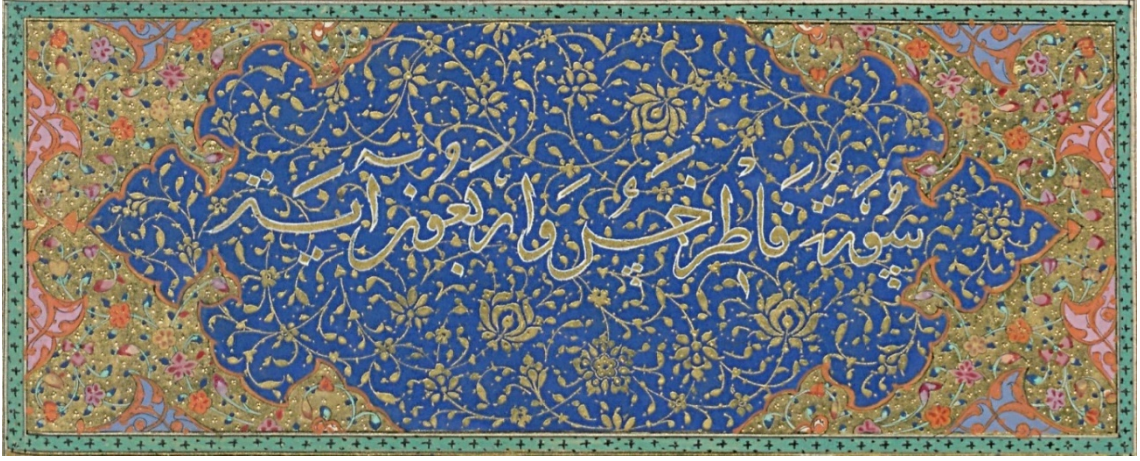 سُورَةُ فَاطِرِ خَمْسٌ وَاَرْبَعُونَ آيَةً